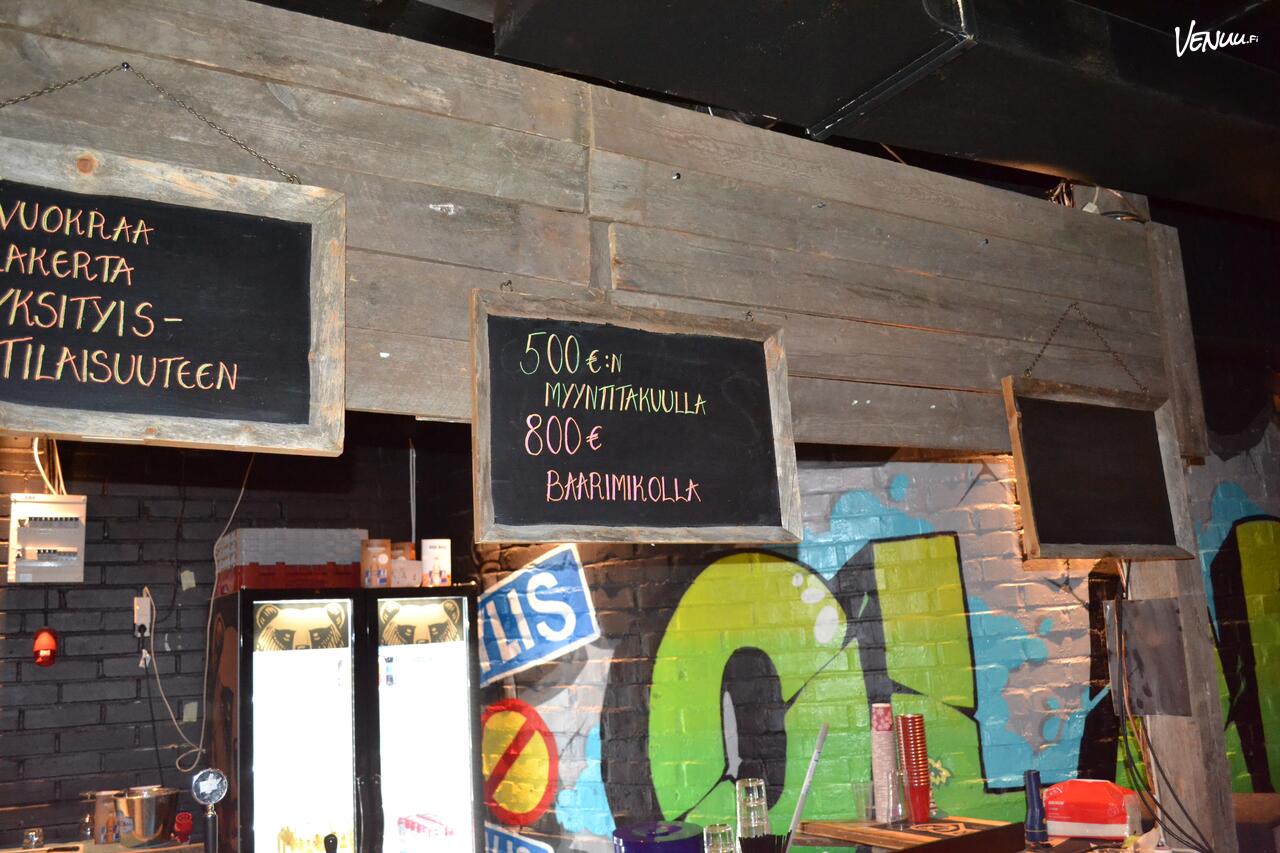 VUOKRAA
LAKERTA
YKSITYIS-
TILAISUUTEEN
500€:N
MYYNTITAKUULLA
800€
BAARIMIKOLLA
LIS
CL
VENUU.FI